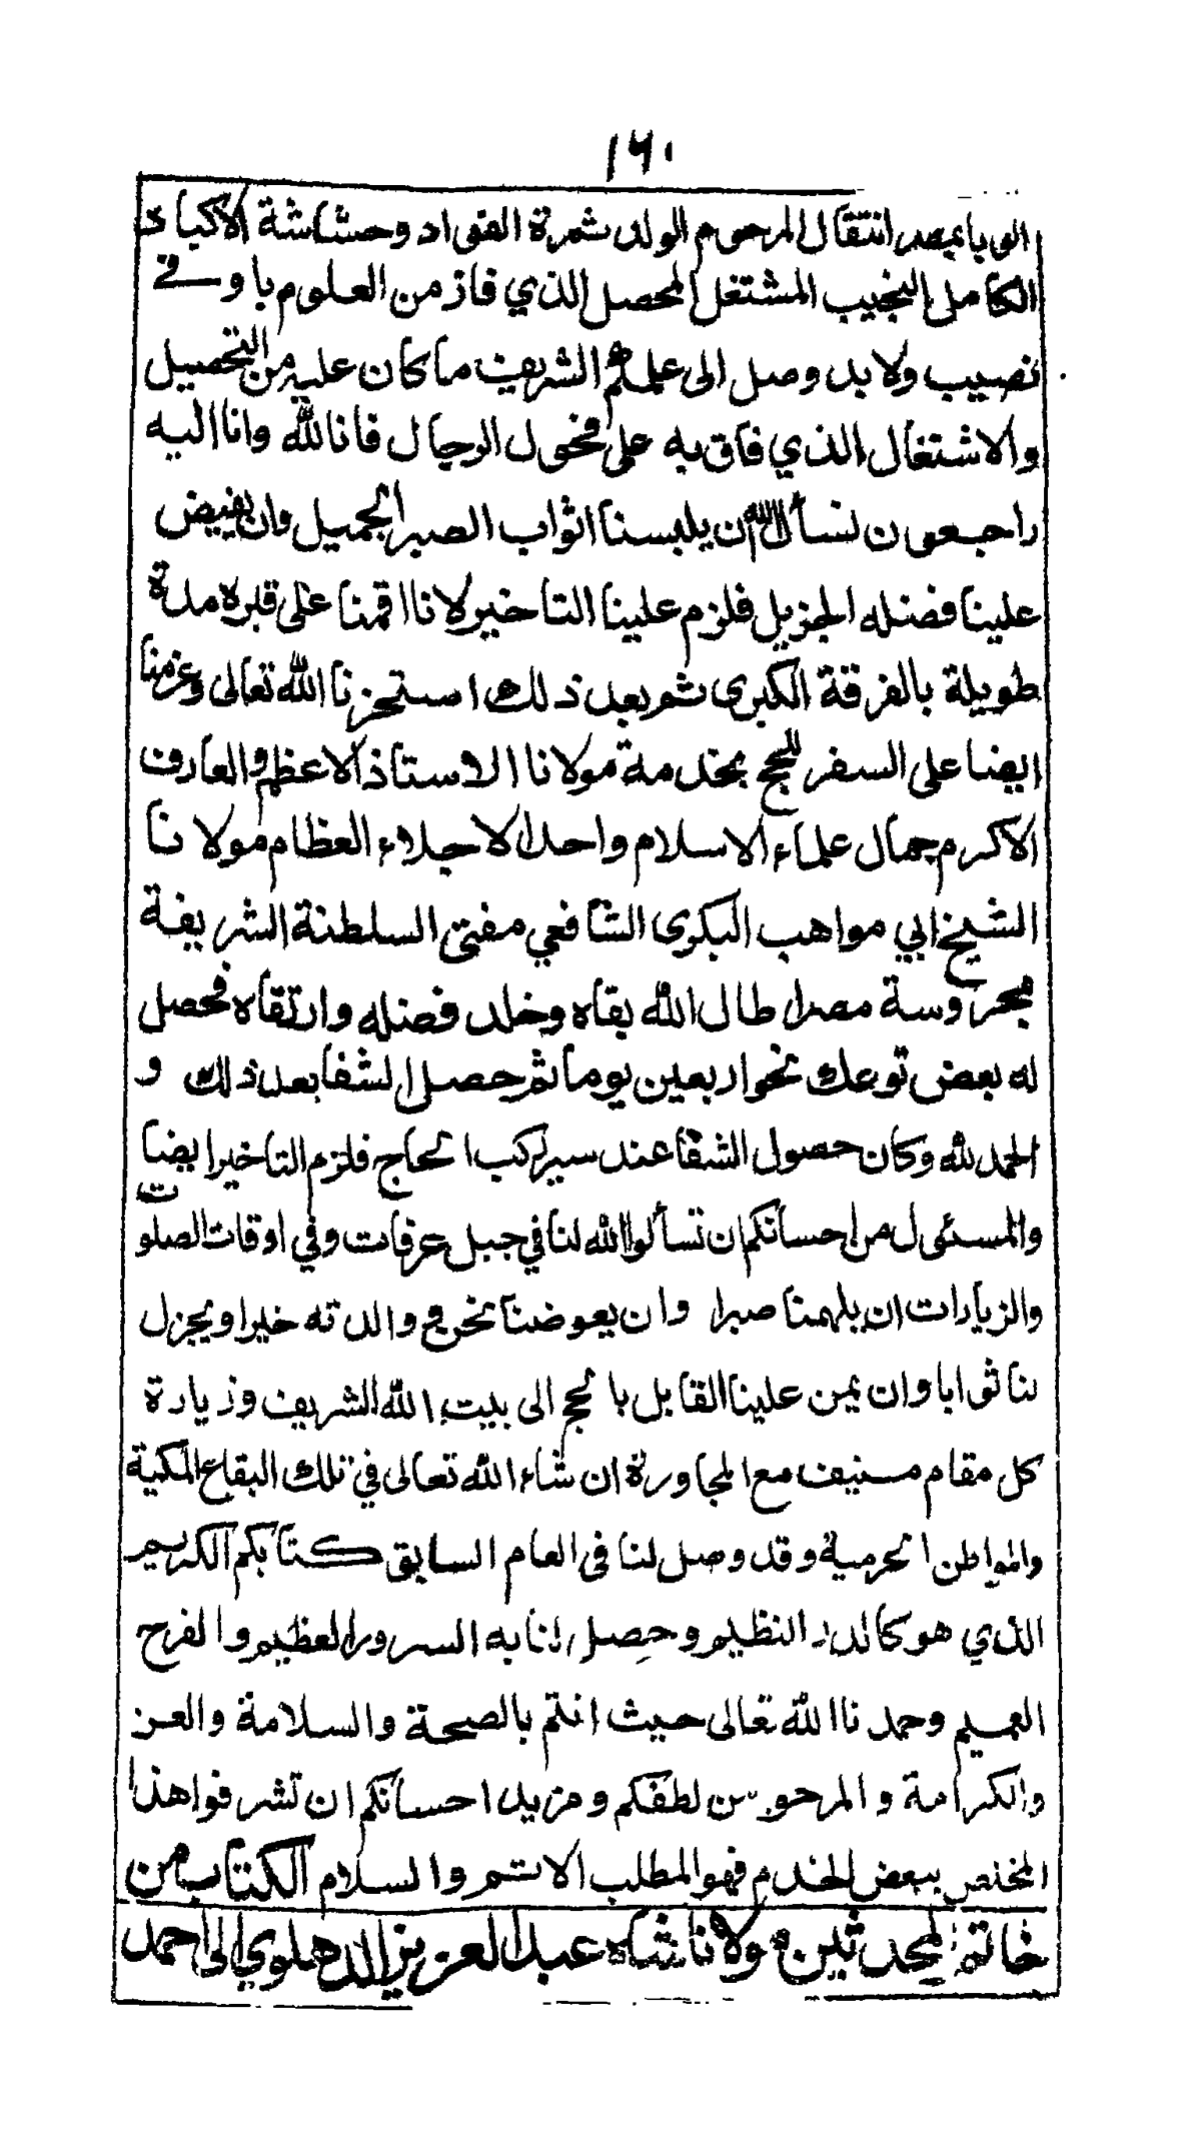 ١٦٠
الوبا بمصر انتقال المرحوم الولد ثمرة الفواد وحشاشة الاكباد
الكامل النجيب المشتغل المحصل الذي فاز من العلوم باوفى
نصيب ولابد وصل الى علمكم الشريف ما كان عليه من التحصيل
والاشتغال الذي فاق به على فحول الرجال فانا لله وانا اليه
راجعون نسأل الله أن يلبسنا اثواب الصبر الجميل وان يفيض
علينا فضله الجزيل فلزم علينا التاخير لانا اقمنا على قبره مدة
طويلة بالفرقة الكبرى ثم بعد ذلك استخرنا الله تعالى وعزمنا
ايضا على السفر للحج بخدمة مولانا الاستاذ الاعظم والعارف
الاكرم جمال علماء الاسلام واحد الاجلاء العظام مولانا
الشيخ ابي مواهب البكرى الشافعي مفتى السلطنة الشريفة
بمحروسة مصر اطال الله بقاه وخلد فضله وارتقاه فحصل
له بعض توعك نحو اربعين يوما ثم حصل الشفا بعد ذلك و
الحمد لله وكان حصول الشفا عند سير ركب الحاج فلزم التاخير ايضا
والمسئول من احسانكم ان تسألوا الله لنا في جبل عرفات وفي اوقات الصلوت
والزيارات ان يلهمنا صبرا وان يعوضنا نحن ووالدته خيرا ويجزل
لنا ثوابا وان يمن علينا القابل بالحج الى بيت الله الشريف وزيارة
كل مقام منيف مع المجاورة ان شاء الله تعالى في تلك البقاع المكية
والمواطن الحرمية وقد وصل لنا فى العام السابق كتابكم الكريم
الذي هو كالدر النظيم وحصل لنا به السرور العظيم والفرح
العميم وحمدنا الله تعالى حيث انتم بالصحة والسلامة والعز
والكرامة والمرجو من لطفكم ومزيد احسانكم ان تشرفوا هذا
المخلص ببعض الخدم فهو المطلب الاتم والسلام الكتاب من
خاتم المحدثين مولانا شاه عبد العزيز الدهلوي الى احمد